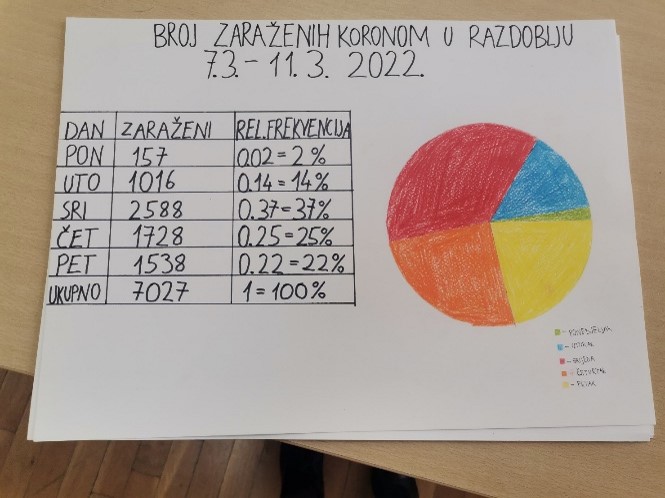 BROJ ZARAŽENIH KORONOM U RAZDOBLJU
7.3. - 11.3. 2022.
DAN ZARAŽENI REL.FREKVENCIJA
PON 157 0.02 = 2 %
UTO 1016 0.14 = 14%
SRI 2588 0.37 = 37%
ČET 1728 0.25 = 25%
PET 1538 0.22 = 22%
UKUPNO 7027 1 = 100%
- PONEDJELJAK
- UTORAK
- SRIJEDA
- ČETVRTAK
- PETAK